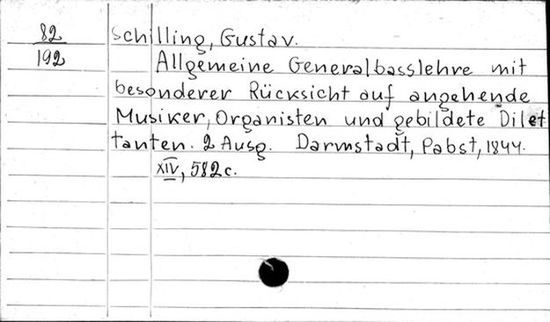 82
192
Schilling, Gustav.
Allgemeine Generalbasslehre mit
besonderer Rücksicht auf angehende
Musiker, Organisten und gebildete Dilet
tanten. 2 Ausg. Darmstadt, Pabst, 1844.
XIV, 582 c.